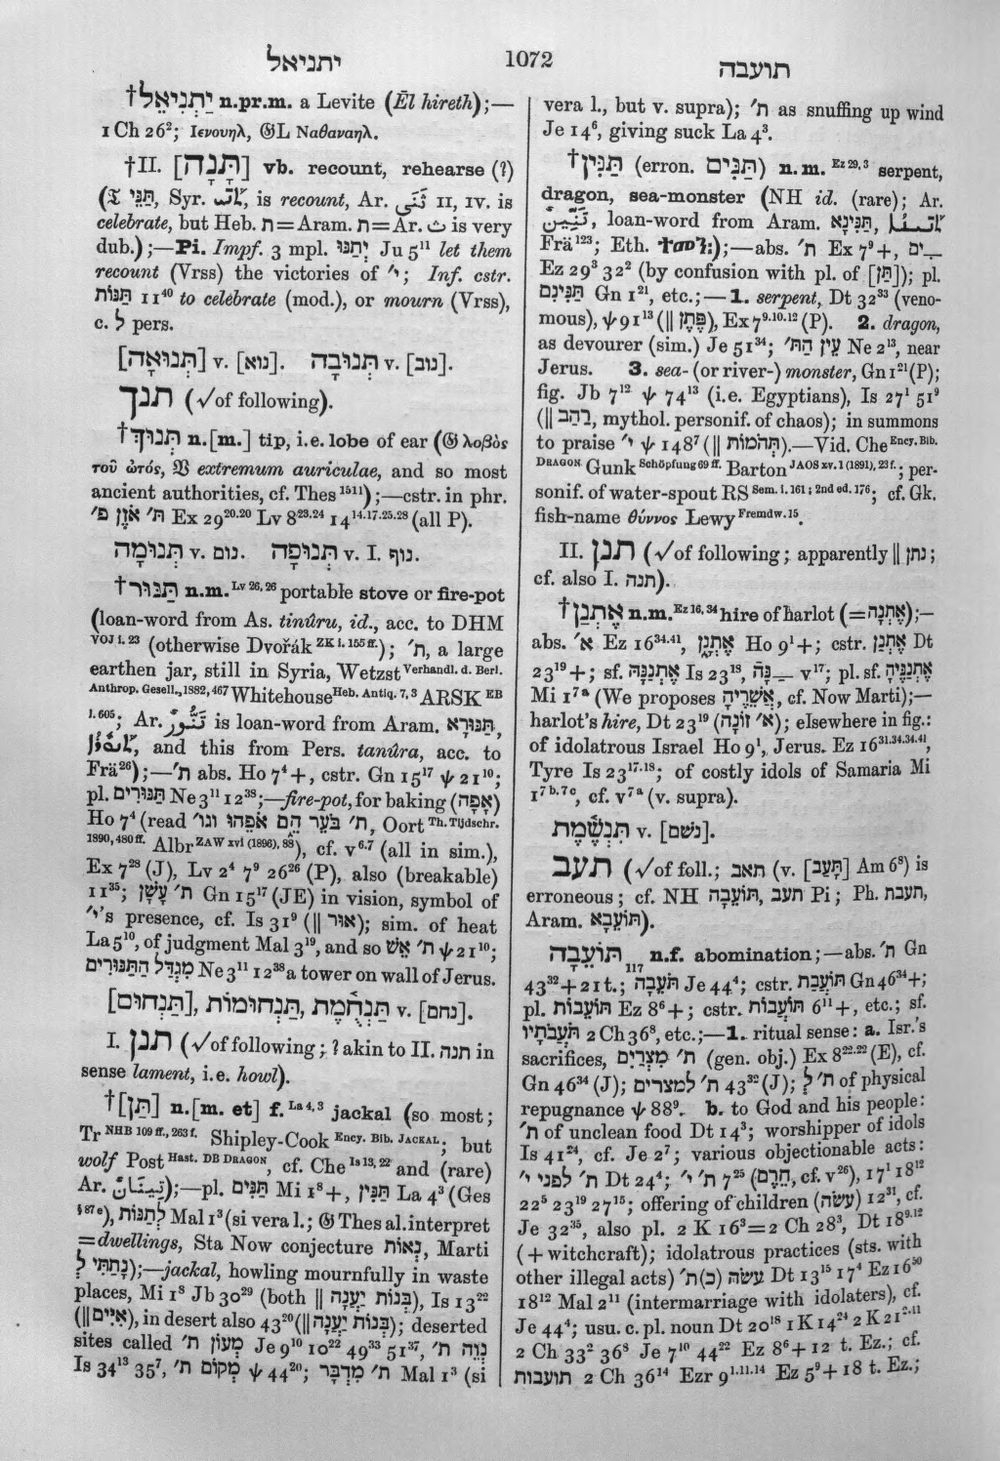 יתניאל
1072
תועבה
†יַתְנִיאֵל n.pr.m. a Levite (Ēl hireth);—
1 Ch 26²; Ιενουηλ, 𝔊L Ναθαναηλ.
†II. [תָּנָה] vb. recount, rehearse (?)
(𝔗 תַּנִּי, Syr. is recount, Ar. II, IV. is
celebrate, but Heb. ת=Aram. ת=Ar. ث is very
dub.);—Pi. Impf. 3 mpl. יְתַנּוּ Ju 5¹¹ let them
recount (Vrss) the victories of י׳; Inf. cstr.
תַּנּוֹת 11⁴⁰ to celebrate (mod.), or mourn (Vrss),
c. לְ pers.
[תְּנוּאָה] v. [נוא]. תְּנוּבָה v. [נוב].
תנך (√of following).
†תְּנוּךְ n.[m.] tip, i.e. lobe of ear (𝔊 λοβὸς
τοῦ ὠτός, 𝔙 extremum auriculae, and so most
ancient authorities, cf. Thes¹⁵¹¹);—cstr. in phr.
ת׳ אֹזֶן פ׳ Ex 29²⁰·²⁰ Lv 8²³·²⁴ 14¹⁴·¹⁷·²⁵·²⁸ (all P).
תְּנוּמָה v. נום. תְּנוּפָה v. I. נוף.
†תַּנּוּר n.m. Lv 26, 26 portable stove or fire-pot
(loan-word from As. tinûru, id., acc. to DHM
VOJ i. 23 (otherwise Dvořák ZK i. 155 ff.); ת׳, a large
earthen jar, still in Syria, Wetzst Verhandl. d. Berl.
Anthrop. Gesell., 1882, 467 Whitehouse Heb. Antiq. 7, 3 ARSK EB
1. 605; Ar. تَنُّور is loan-word from Aram. תַּנּוּרָא,
and this from Pers. tanûra, acc. to
Frä²⁶);—ת׳ abs. Ho 7⁴+, cstr. Gn 15¹⁷ ψ 21¹⁰;
pl. תַּנּוּרִים Ne 3¹¹ 12³⁸;—fire-pot, for baking (אָפָה)
Ho 7⁴ (read ת׳ בֹּעֵר הֵם אֹפֵהוּ וגו׳, Oort Th. Tijdschr.
1890, 480 ff. Albr ZAW xvi (1896), 88), cf. v⁶·⁷ (all in sim.),
Ex 7²⁸ (J), Lv 2⁴ 7⁹ 26²⁶ (P), also (breakable)
11³⁵; ת׳ עָשָׁן Gn 15¹⁷ (JE) in vision, symbol of
י׳'s presence, cf. Is 31⁹ (|| אוּר); sim. of heat
La 5¹⁰, of judgment Mal 3¹⁹, and so ת׳ אֵשׁ ψ 21¹⁰;
מִגְדַּל הַתַּנּוּרִים Ne 3¹¹ 12³⁸ a tower on wall of Jerus.
[תַּנְחוּם], תַּנְחוּמוֹת, תַּנְחֻמֶת v. [נחם].
I. תנן (√of following; ? akin to II. תנה in
sense lament, i.e. howl).
†[תַּן] n.[m. et] f. La 4, 3 jackal (so most;
Tr NHB 109 ff., 263 f. Shipley-Cook Ency. Bib. JACKAL; but
wolf Post Hast. DB DRAGON, cf. Che Is 13, 22 and (rare)
Ar. تِينَان);—pl. תַּנִּים Mi 1⁸+, תַּנִּין La 4³ (Ges
§ 87 e), לְתַנּוֹת Mal 1³ (si vera l.; 𝔊 Thes al. interpret
=dwellings, Sta Now conjecture נְאוֹת, Marti
נָתַתִּי לְ׳);—jackal, howling mournfully in waste
places, Mi 1⁸ Jb 30²⁹ (both || בְּנוֹת יַעֲנָה), Is 13²²
(|| אִיִּים), in desert also 43²⁰ (|| בְּנוֹת יַעֲנָה); deserted
sites called מְעוֹן ת׳ Je 9¹⁰ 10²² 49³³ 51³⁷, נְוֵה ת׳
Is 34¹³ 35⁷, מְקוֹם ת׳ ψ 44²⁰; ת׳ מִדְבָּר Mal 1³ (si
vera l., but v. supra); ת׳ as snuffing up wind
Je 14⁶, giving suck La 4³.
†תַּנִּין (erron. תַּנִּים) n.m. Ez 29, 3 serpent,
dragon, sea-monster (NH id. (rare); Ar.
تِنِّين, loan-word from Aram. תַּנִּינָא,
Frä¹²³; Eth.);—abs. ת׳ Ex 7⁹+, ־ִים
Ez 29³ 32² (by confusion with pl. of [תַּן]); pl.
תַּנִּינִם Gn 1²¹, etc.;—1. serpent, Dt 32³³ (veno-
mous), ψ 91¹³ (|| פֶּתֶן), Ex 7⁹·¹⁰·¹² (P). 2. dragon,
as devourer (sim.) Je 51³⁴; עֵין הַתּ׳ Ne 2¹³, near
Jerus. 3. sea- (or river-) monster, Gn 1²¹ (P);
fig. Jb 7¹² ψ 74¹³ (i.e. Egyptians), Is 27¹ 51⁹
(|| רַהַב, mythol. personif. of chaos); in summons
to praise י׳ ψ 148⁷ (|| תְּהֹמוֹת).—Vid. Che Ency. Bib.
DRAGON Gunk Schöpfung 69 ff. Barton JAOS xv. 1 (1891), 23 f.; per-
sonif. of water-spout RS Sem. i. 161; 2nd ed. 176; cf. Gk.
fish-name θύννος Lewy Fremdw. 15.
II. תנן (√of following; apparently || נתן;
cf. also I. תנה).
†אֶתְנַן n.m. Ez 16, 34 hire of harlot (=אֶתְנָה);—
abs. א׳ Ez 16³⁴·⁴¹, אֶתְנָן Ho 9¹+; cstr. אֶתְנַן Dt
23¹⁹+; sf. אֶתְנַנָּהּ Is 23¹⁸, ־נָּהֿ v¹⁷; pl. sf. אֶתְנַנֶּיהָ
Mi 1⁷ᵃ (We proposes אֲשֵׁרֶיהָ, cf. Now Marti);—
harlot's hire, Dt 23¹⁹ (א׳ זוֹנָה); elsewhere in fig.:
of idolatrous Israel Ho 9¹, Jerus. Ez 16³¹·³⁴·³⁴·⁴¹,
Tyre Is 23¹⁷·¹⁸; of costly idols of Samaria Mi
1⁷ᵇ·⁷ᶜ, cf. v⁷ᵃ (v. supra).
תִּנְשֶׁמֶת v. [נשׁם].
תעב (√of foll.; תאב (v. [תָּעַב] Am 6⁸) is
erroneous; cf. NH תעב, תּוֹעֵבָה Pi; Ph. תעבת,
Aram. תּוֹעֵבָא).
תּוֹעֵבָה 117 n.f. abomination;—abs. ת׳ Gn
43³²+21t.; תֹּעֵבָה Je 44⁴; cstr. תּוֹעֲבַת Gn 46³⁴+;
pl. תּוֹעֵבוֹת Ez 8⁶+; cstr. תּוֹעֲבוֹת 6¹¹+, etc.; sf.
תֹּעֲבֹתָיו 2 Ch 36⁸, etc.;—1. ritual sense: a. Isr.'s
sacrifices, ת׳ מִצְרַיִם (gen. obj.) Ex 8²²·²² (E), cf.
Gn 46³⁴ (J); ת׳ למצרים 43³² (J); ת׳ לְ of physical
repugnance ψ 88⁹. b. to God and his people:
ת׳ of unclean food Dt 14³; worshipper of idols
Is 41²⁴, cf. Je 2⁷; various objectionable acts:
ת׳ לפני י׳ Dt 24⁴; ת׳ י׳ 7²⁵ (חֵרֶם, cf. v²⁶), 17¹ 18¹²
22⁵ 23¹⁹ 27¹⁵; offering of children (עשׂה) 12³¹, cf.
Je 32³⁵, also pl. 2 K 16³=2 Ch 28³, Dt 18⁹·¹²
(+witchcraft); idolatrous practices (sts. with
other illegal acts) עשׂה (כ)ת׳ Dt 13¹⁵ 17⁴ Ez 16⁵⁰
18¹² Mal 2¹¹ (intermarriage with idolaters), cf.
Je 44⁴; usu. c. pl. noun Dt 20¹⁸ 1 K 14²⁴ 2 K 21²·¹¹
2 Ch 33² 36⁸ Je 7¹⁰ 44²² Ez 8⁶+12 t. Ez.; cf.
תועבות 2 Ch 36¹⁴ Ezr 9¹·¹¹·¹⁴ Ez 5⁹+18 t. Ez.;